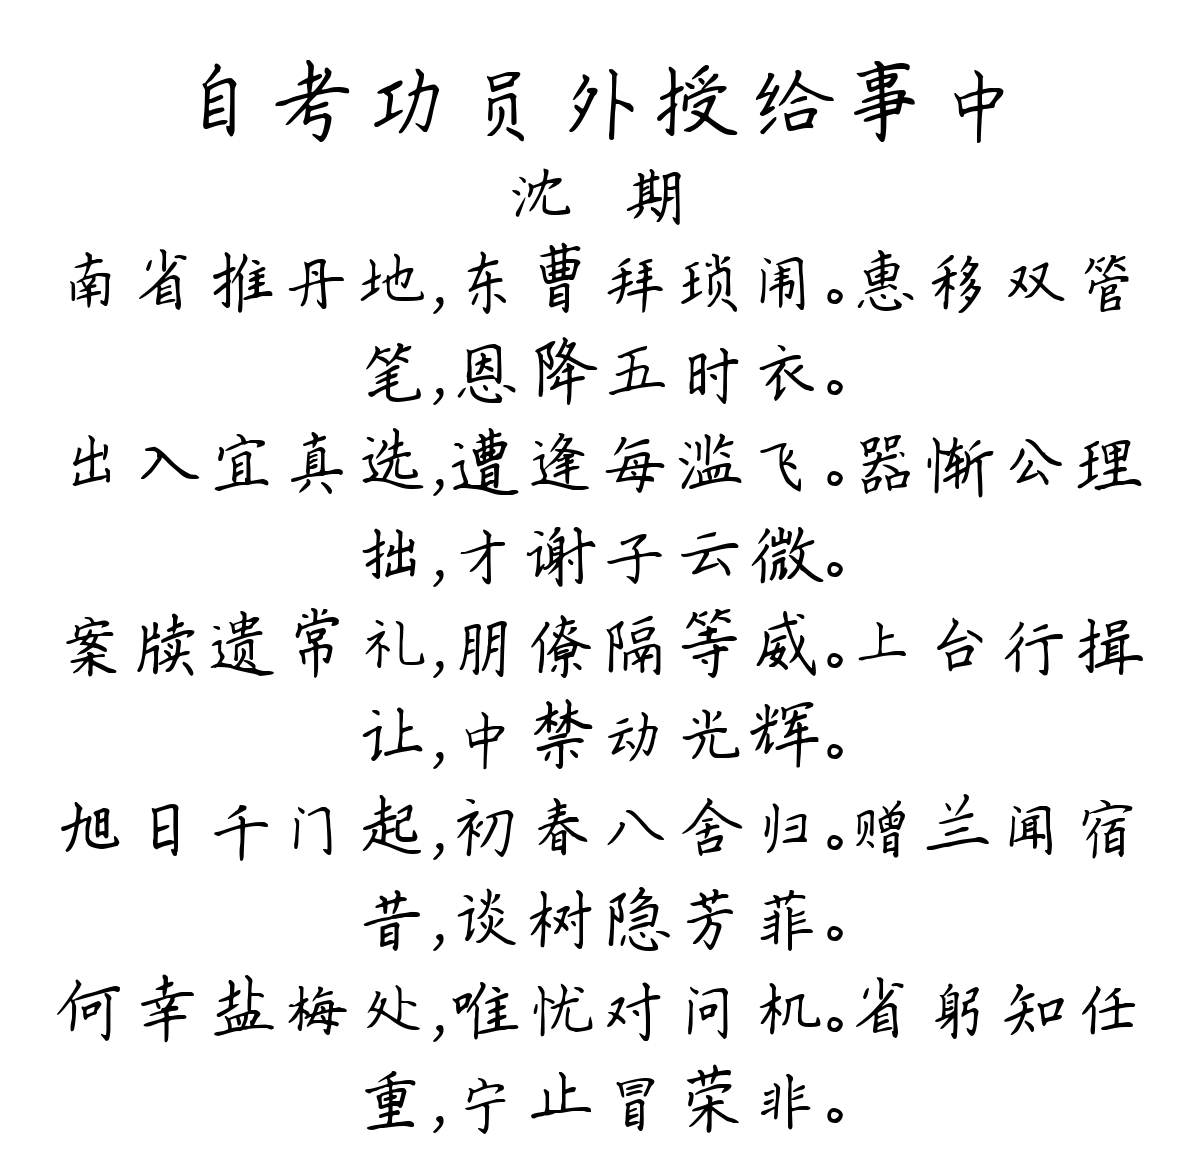 自考功员外授给事中
沈 期
南省推丹地,东曹拜琐闱。惠移双管
笔,恩降五时衣。
出入宜真选,遭逢每滥飞。器惭公理
拙,才谢子云微。
案牍遗常礼,朋僚隔等威。上台行揖
让,中禁动光辉。
旭日千门起,初春八舍归。赠兰闻宿
昔,谈树隐芳菲。
何幸盐梅处,唯忧对问机。省躬知任
重,宁止冒荣非。